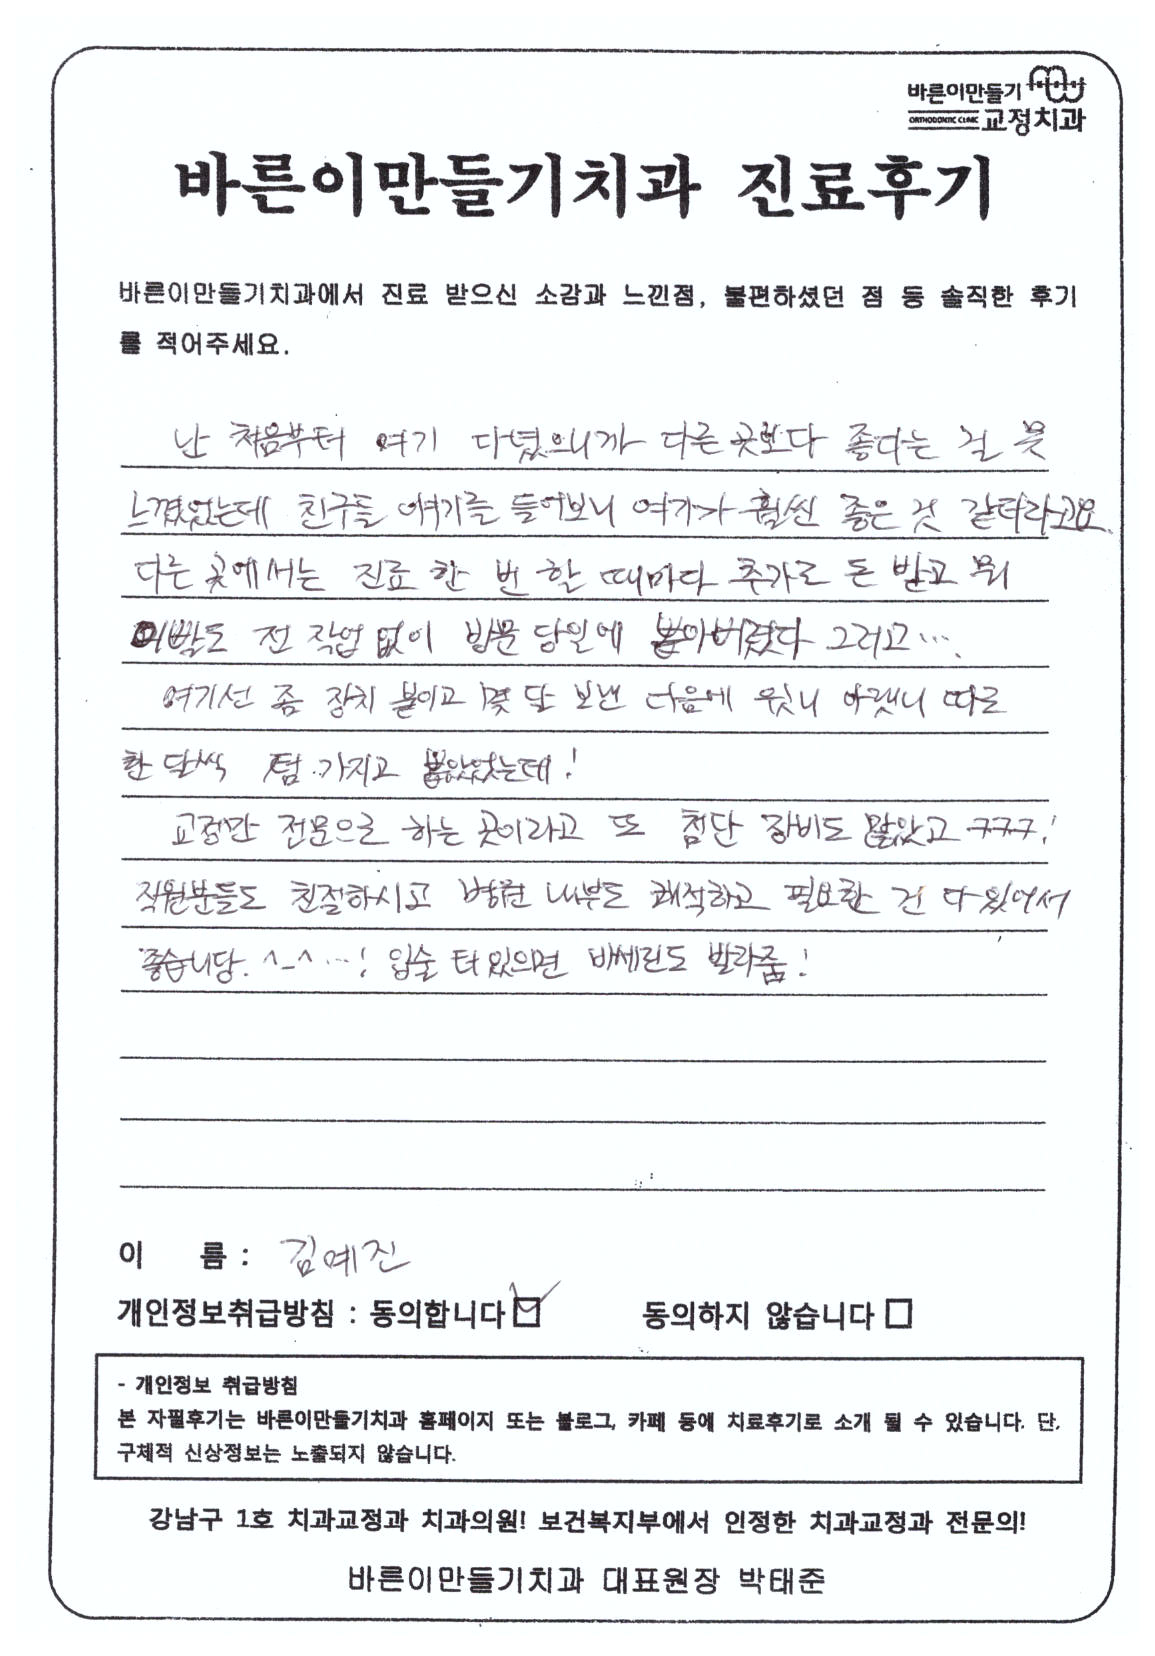 바른이만들기
ORTHODONTIC CLINIC 교정치과
바른이만들기치과 진료후기
바른이만들기치과에서 진료 받으신 소감과 느낀점, 불편하셨던 점 등 솔직한 후기
를 적어주세요.
난 처음부터 여기 다녔으니까 다른 곳보다 좋다는 걸 못
느꼈었는데 친구들 얘기를 들어보니 여기가 훨씬 좋은 것 같더라고요
다른 곳에서는 진료 한 번 할 때마다 추가로 돈 받고 뭐
이빨도 전 작업 없이 방문 당일에 뽑아버렸다 그러고….
여기선 좀 장치 붙이고 몇 달 보낸 다음에 윗니 아랫니 따로
한 달씩 텀 가지고 뽑았었는데!
교정만 전문으로 하는 곳이라고 또 첨단 장비도 많았고 ㅋㅋㅋ!
직원분들도 친절하시고 병원 내부도 쾌적하고 필요한 건 다 있어서
좋습니당. ^_^ …! 입술 터 있으면 바세린도 발라줌!
이 름 : 김예진
개인정보취급방침 : 동의합니다 ☑ 동의하지 않습니다 □
- 개인정보 취급방침
본 자필후기는 바른이만들기치과 홈페이지 또는 블로그, 카페 등에 치료후기로 소개 될 수 있습니다. 단,
구체적 신상정보는 노출되지 않습니다.
강남구 1호 치과교정과 치과의원! 보건복지부에서 인정한 치과교정과 전문의!
바른이만들기치과 대표원장 박태준